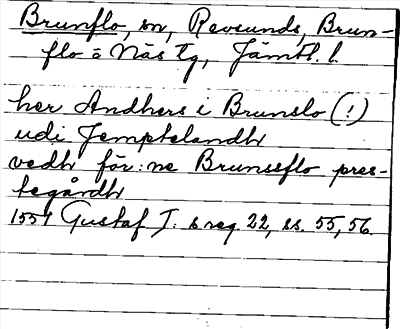 Brunflo, sn, Revsunds, Brun-
flo o Näs tg, Jämtl. l.
her Andhers i Brunslo (!)
udi Jemptelandh
vedh för:ne Brunssflo pres-
tegårdh
1557 Gustaf I: s reg 22, ss. 55, 56.